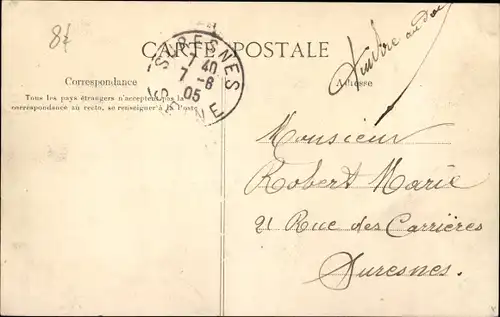 8f
CARTE POSTALE
Timbre au dos
SURESNES
7 40
7 -8
05
SEINE
Correspondance
Adresse
Tous les pays étrangers n'acceptent pas la
correspondance au recto, se renseigner à la Poste
Monsieur
Robert Marie
21 Rue des Carrières
Suresnes.